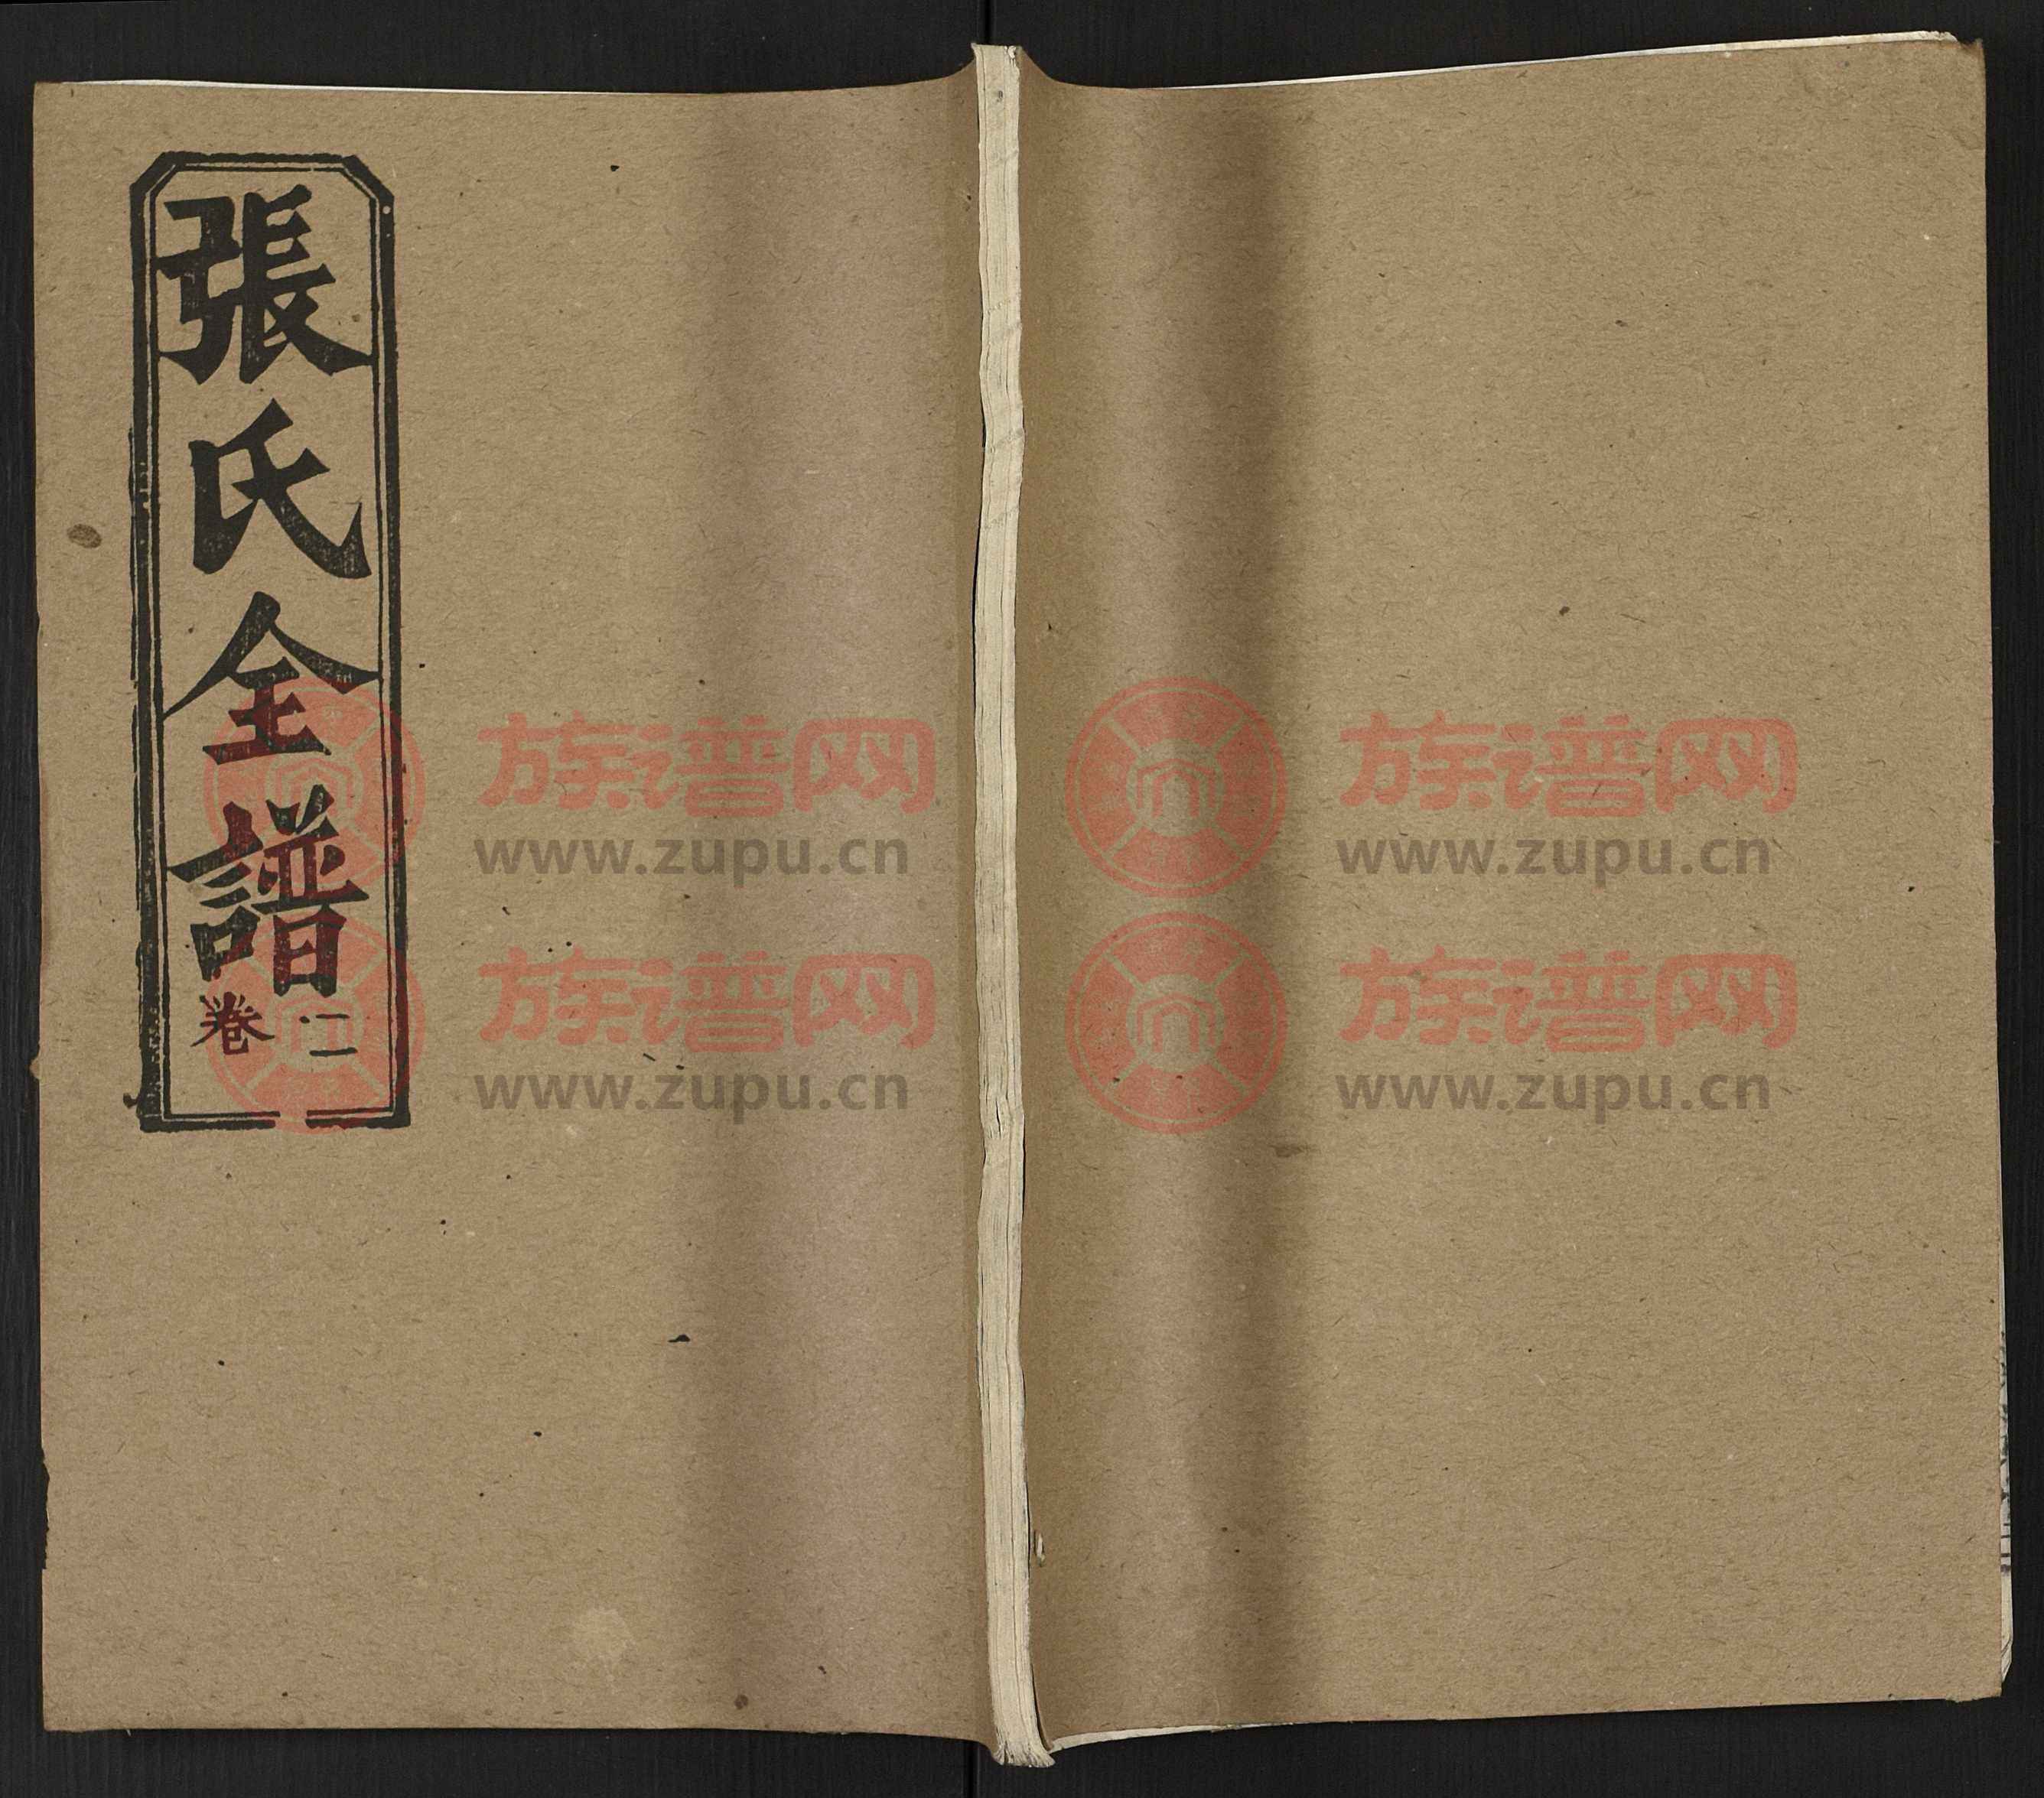 張氏全譜
卷二
族谱网
www.zupu.cn
族谱网
www.zupu.cn
族谱网
www.zupu.cn
族谱网
www.zupu.cn